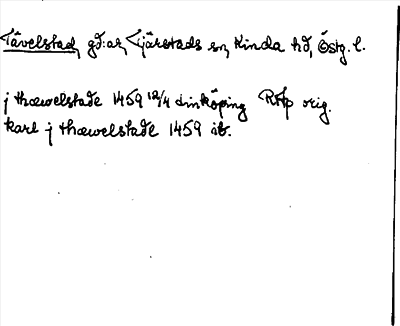 Tävelstad, gd:ar, Tjärstads sn, Kinda hd, Östg. l.
j thæwelstade 1459 12/4 Linköping RAp orig.
karl j thæwelstade 1459 ib.